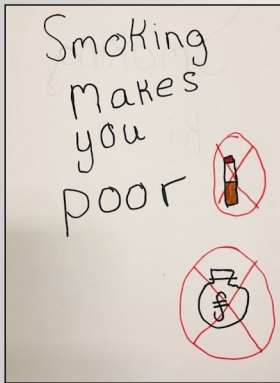 Smoking
Makes
you
poor